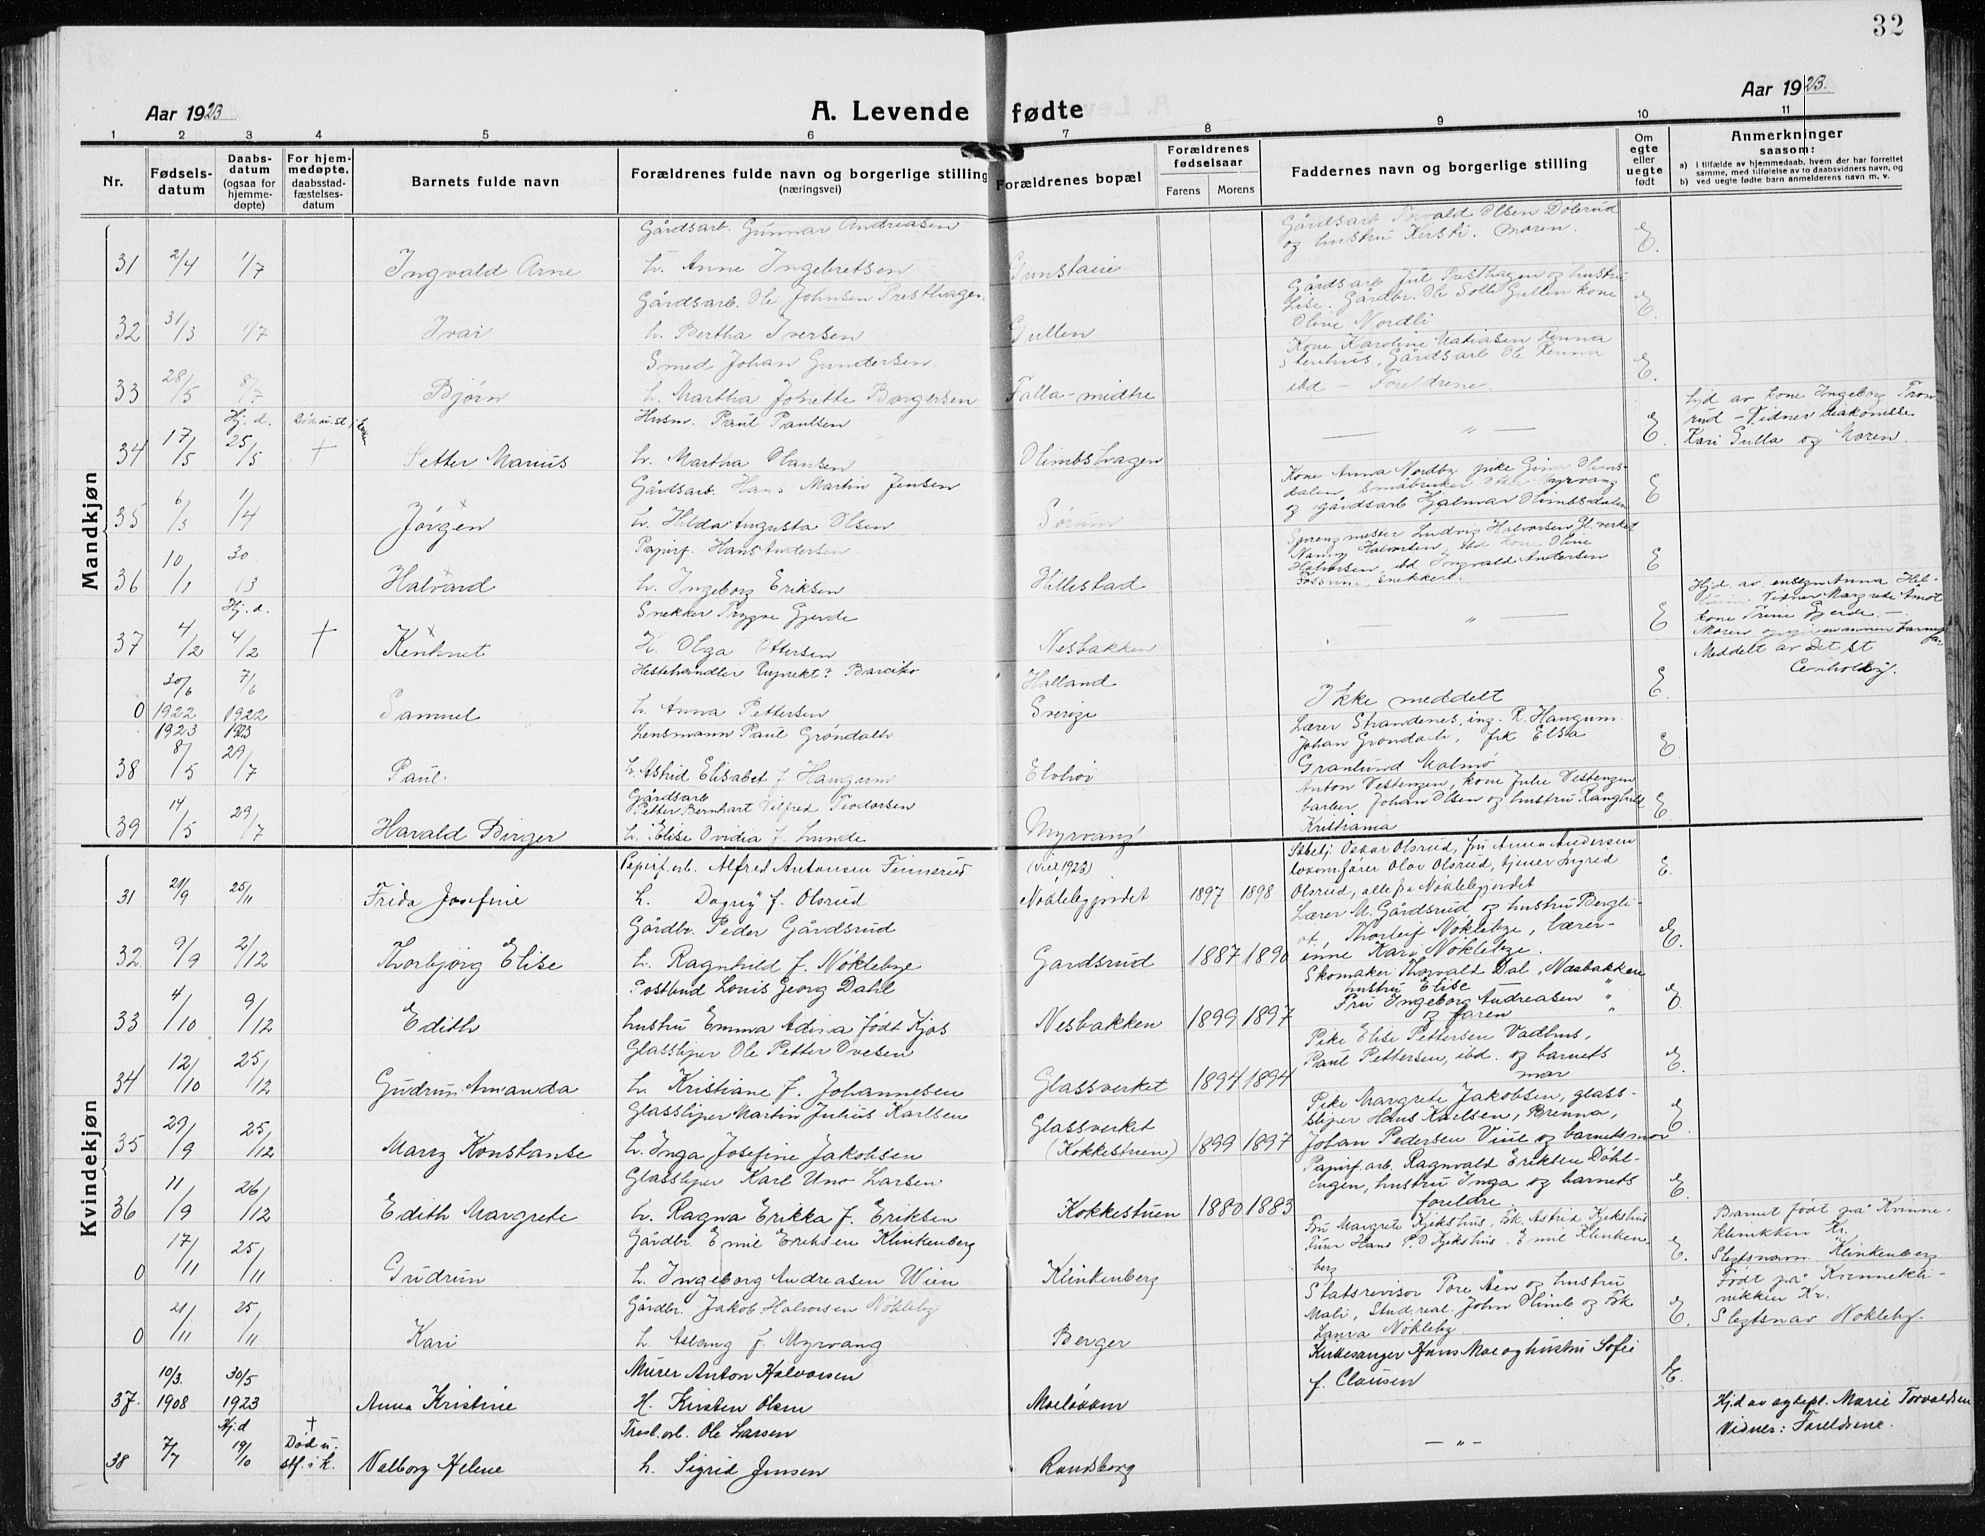 32
Aar 1923
A. Levende fødte
Aar 1923.
1 2 3 4 5 6 7 8 9 10 11
Nr.
Fødselsdatum
Daabsdatum (ogsaa for hjemmedøpte)
For hjemmedøpte, daabsstadfæstelsesdatum
Barnets fulde navn
Forældrenes fulde navn og borgerlige stilling (næringsvei)
Forældrenes bopæl
Forældrenes fødselsaar
Farens Morens
Faddernes navn og borgerlige stilling
Om egte eller uegte født
Anmerkninger saasom:
a) i tilfælde av hjemmedaab, hvem der har forrettet samme, med tilføielse av to daabsvidners navn, og
b) ved uegte fødte barn anmelderens navn m. v.
Mandkjøn
Gårdsarb. Gunnar Andreasen
Gårdsarb Torvald Olsen Dølerud
og hustru Kersti. Moren.
31 2/4 1/7 Ingvald Arne h. Anne Ingebretsen E.
Gårdsarb. Ole Johnsen Presthagen
Gårdsarb Jul Presthagen og hustru
Lise. Gårdbr. Ole Solli Gullen kone
Oline Nordli
32 31/3 1/7 Ivar h. Bertha Iversen Gullen E.
Smed Johan Gundersen
Kone Karoline Matiasen Renna
Stenhus, Gårdsarb Ole Renna
ibd – Foreldrene
33 28/5 8/7 Bjørn h. Martha Josette Borgersen Falla-midtre E.
Hj. d.
Husm. Paul Paulsen
Hjd av kone Ingeborg Tron
rud – Vidner diakonisse
Kari Gulla og Moren.
34 17/5 25/5 † Petter Marius h. Martha Hansen Olimbshagen — " — E.
Gårdsarb. Hans Martin Jensen
Kone Anna Nordby pike Gina Olims-
dalen, Småbruker Myrvang
og gårdsarb Hjalmar Olimbsdalen
35 6/3 1/4 Jørgen h. Hilda Augusta Olsen Sørum E
Papirf. Hans Andersen
Sprengmester Ludvig Halvorsen Gl. verket
Nanny Halvorsen, ibd kone Oline
Halvorsen, ibd Ingvald Andersen
Fossum, snekker.
36 10/1 30/3 Halvard h. Ingeborg Eriksen Hillestad E
Hj. d.
Snekker Trygve Gjerde
Hjd av
Vidner Margrete Amot
kone Trine Gjerde –
37 4/2 4/2 † H. Olga Ottersen Nesbakken — " — E
Meddelt av Det st
Hestehandler
30/6 7/6 Halland Ikke meddelt E.
0 1922 1922 Samuel h. Anna Pettersen Sverige
1923 1923
Lensmann Paul Grøndahl
Lærer Strandenes, ing. R. Haugum
Johan Grøndahl, frk Elsa
Granlund Malmø
38 8/5 29/7 Paul h. Astrid Elisabet f Haugerm Elvhøi E
Gårdsarb
Petter Bernhart Vilfred Teodorsen
Anton Vestengen, kone Julie Vestengen
barber Johan Olsen og hustru Ranghild
Kristiania
39 14/5 29/7 Harald Birger h. Elise Ovidia f. Lunde Myrvang E.
Kvindekjøn
Papirf. arb. Alfred Antonsen Finnerud
(viet 1923)
Oskar Olsrud, fru Anna Andersen
lokom.fører Olav Olsrud, tjener Ingrid
Olsrud, alle fra Nøklebyjordet
31 21/9 25/11 Frida Josefine h. Dagny f. Olsrud Nøklebyjordet 1897 1898 E.
Gårdbr. Peder Gårdsrud
Lærer M. Gårdsrud og hustru Bergli-
ot, Thorleif Nøkleby, lærer-
inne Kari Nøkleby.
32 9/9 2/12 Thorbjørg Elise h. Ragnhild f. Nøklebye Gardsrud 1887 1890 E.
Postbud Louis Georg Dahl
Skomaker Thorvald Dal, Næsbakken
hustru Elise "
Fru Ingeborg Andreasen "
og faren "
33 4/10 9/12 Edith hustru Emma Adina født Kjøs Nesbakken 1899 1897 E.
Glassliper Ole Petter Ovesen
Pike Elise Pettersen Vadhus,
Paul Pettersen, ibd. og barnets
mor
34 12/10 25/12 Gudrun Amanda h. Kristiane f. Johannesen Glassverket 1894 1894 E.
Glassliper Martin Julius Karlsen
Pike Margrete Jakobsen, glass-
sliper Hans Karlsen, Brenna,
Johan Pedersen Viul og barnets mor
35 29/9 25/12 Mary Konstanse h. Inga Josefine Jakobsen Glassverket (Kokkestuen) 1899 1897 E.
Glassliper Karl Uno Larsen
Papirf. arb. Ragnvald Eriksen Døhl-
engen, hustru Inga og barnets
foreldre
36 11/9 26/12 Edith Margrete h. Ragna Erikka f. Eriksen Kokkestuen 1880 1883 E.
Gårdbr. Emil Eriksen Klinkenberg
Fru Margrete Kjekshus, Frk. Astrid Kjekshus
Hans P. O Kjekshus. Emil Klinken-
berg
Barnet født på Kvinne-
klinikken Kr.
Slegtsnavn Klinkenberg
0 17/11 25/11 Gudrun h. Ingeborg Andreasen Wien Klinkenberg E.
Gårdbr. Jakob Halvorsen Nøkleby
Statsrevisor Tore Åen og hustru
Mali, Stud. real. John Olimb og Frk
Laura Nøkleby.
Født på Kvinnekli-
nikken Kr.
Slegtsnav Nøkleby.
0 21/11 25/11 Kari h. Aslaug f. Myrvang Berger E.
Murer Anton Halvorsen
Kirkesanger Hans Moe og hustru Sofie
f. Clausen
10/3. 30/5
37. 1908 1923 Anna Kristine H. Kirsten Olsen Moeløkken E.
Hjd av sykepl. Marie Torvaldsen
Vidner: Foreldrene.
Hj.d †
Død u. stf. i k.
Tresl.arb. Ole Larsen
38 7/7 19/10 Valborg Helene h. Sigrid Jensen Randsborg — " —